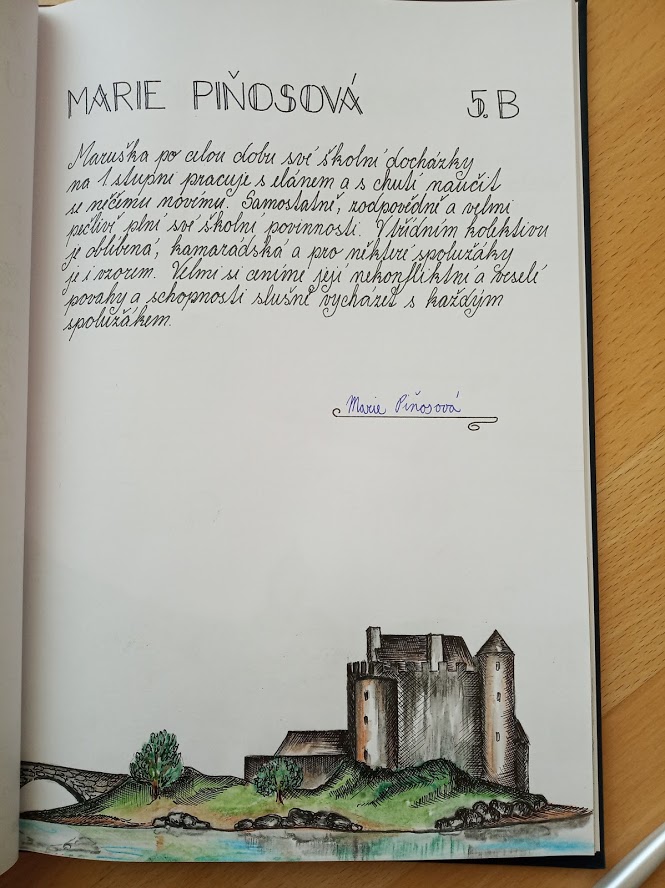 MARIE PIŇOSOVÁ 5.B
Maruška po celou dobu své školní docházky
na 1. stupni pracuje s elánem a s chutí naučit
se něčemu novému. Samostatně, zodpovědně a velmi
pečlivě plní své školní povinnosti. V třídním kolektivu
je oblíbená, kamarádská a pro některé spolužáky
je i vzorem. Velmi si ceníme její nekonfliktní a veselé
povahy a schopnosti slušně vycházet s každým
spolužákem.
Marie Piňosová